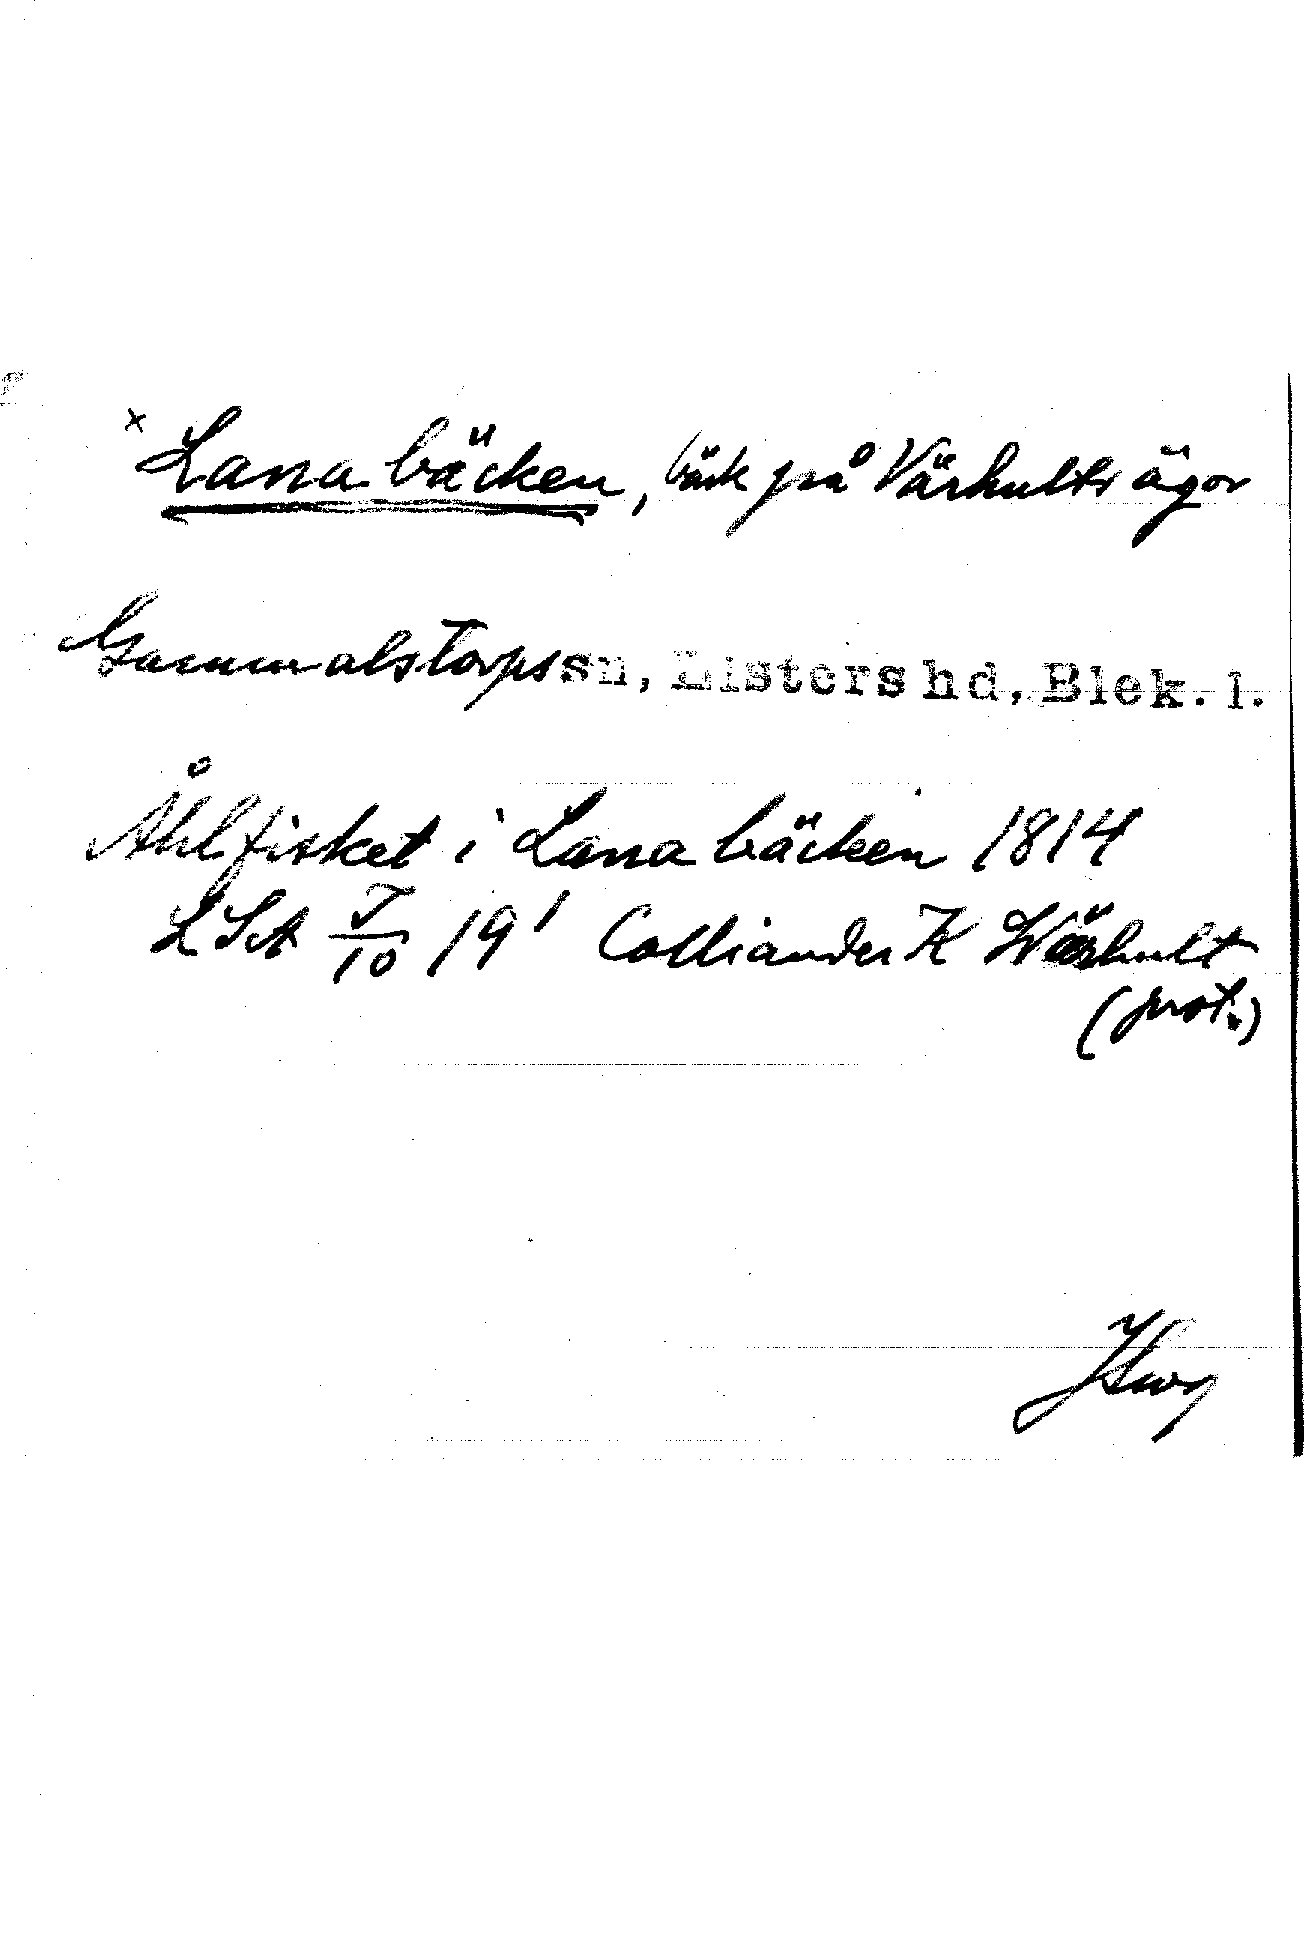 x Lana bäcken, bäck på Värhults ägor
Gammalstorps sn, Listers hd, Blek. l.
Åhlfisket i Lana bäcken 1814
LSA I/10 19¹ Colliander K Wärhult
(prot.)